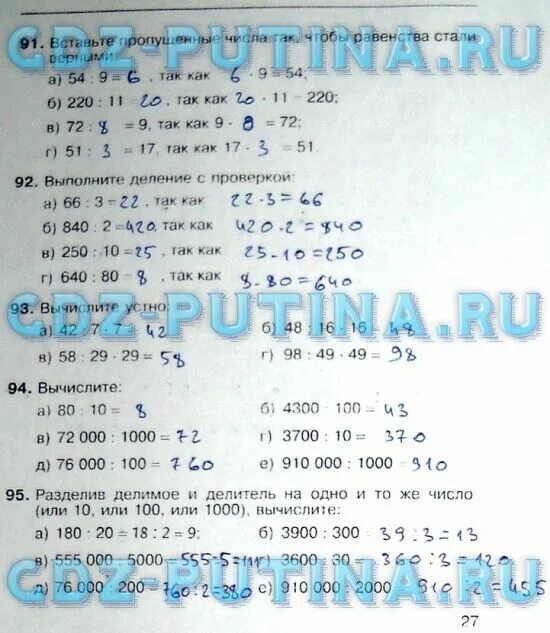 91. Вставьте пропущенные числа так, чтобы равенства стали
верными:
а) 54 : 9 = 6, так как 6 · 9 = 54;
б) 220 : 11 = 20, так как 20 · 11 = 220;
в) 72 : 8 = 9, так как 9 · 8 = 72;
г) 51 : 3 = 17, так как 17 · 3 = 51.
92. Выполните деление с проверкой:
а) 66 : 3 = 22, так как 22 · 3 = 66
б) 840 : 2 = 420, так как 420 · 2 = 840
в) 250 : 10 = 25, так как 25 · 10 = 250
г) 640 : 80 = 8, так как 8 · 80 = 640
93. Вычислите устно:
а) 42 : 7 · 7 = 42 б) 48 : 16 · 16 = 48
в) 58 : 29 · 29 = 58 г) 98 : 49 · 49 = 98
94. Вычислите:
а) 80 : 10 = 8 б) 4300 : 100 = 43
в) 72 000 : 1000 = 72 г) 3700 : 10 = 370
д) 76 000 : 100 = 760 е) 910 000 : 1000 = 910
95. Разделив делимое и делитель на одно и то же число
(или 10, или 100, или 1000), вычислите:
а) 180 : 20 = 18 : 2 = 9; б) 3900 : 300 = 39 : 3 = 13
в) 555 000 : 5000 = 555 : 5 = 111 г) 3600 : 30 = 360 : 3 = 120
д) 76 000 : 200 = 760 : 2 = 380 е) 910 000 : 2000 = 910 : 2 = 455
27
GDZ-PUTINA.RU
GDZ-PUTINA.RU
GDZ-PUTINA.RU